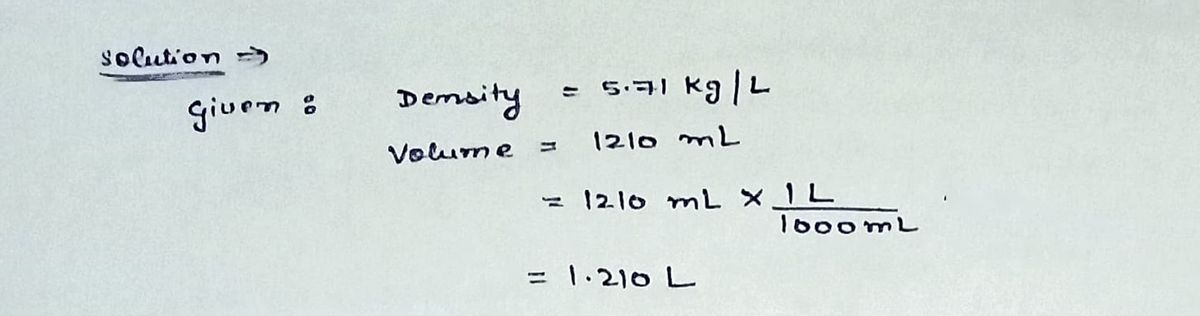 solution ⇒
given : Density = 5.71 kg/L
Volume = 1210 mL
= 1210 mL × 1L/1000mL
= 1.210 L